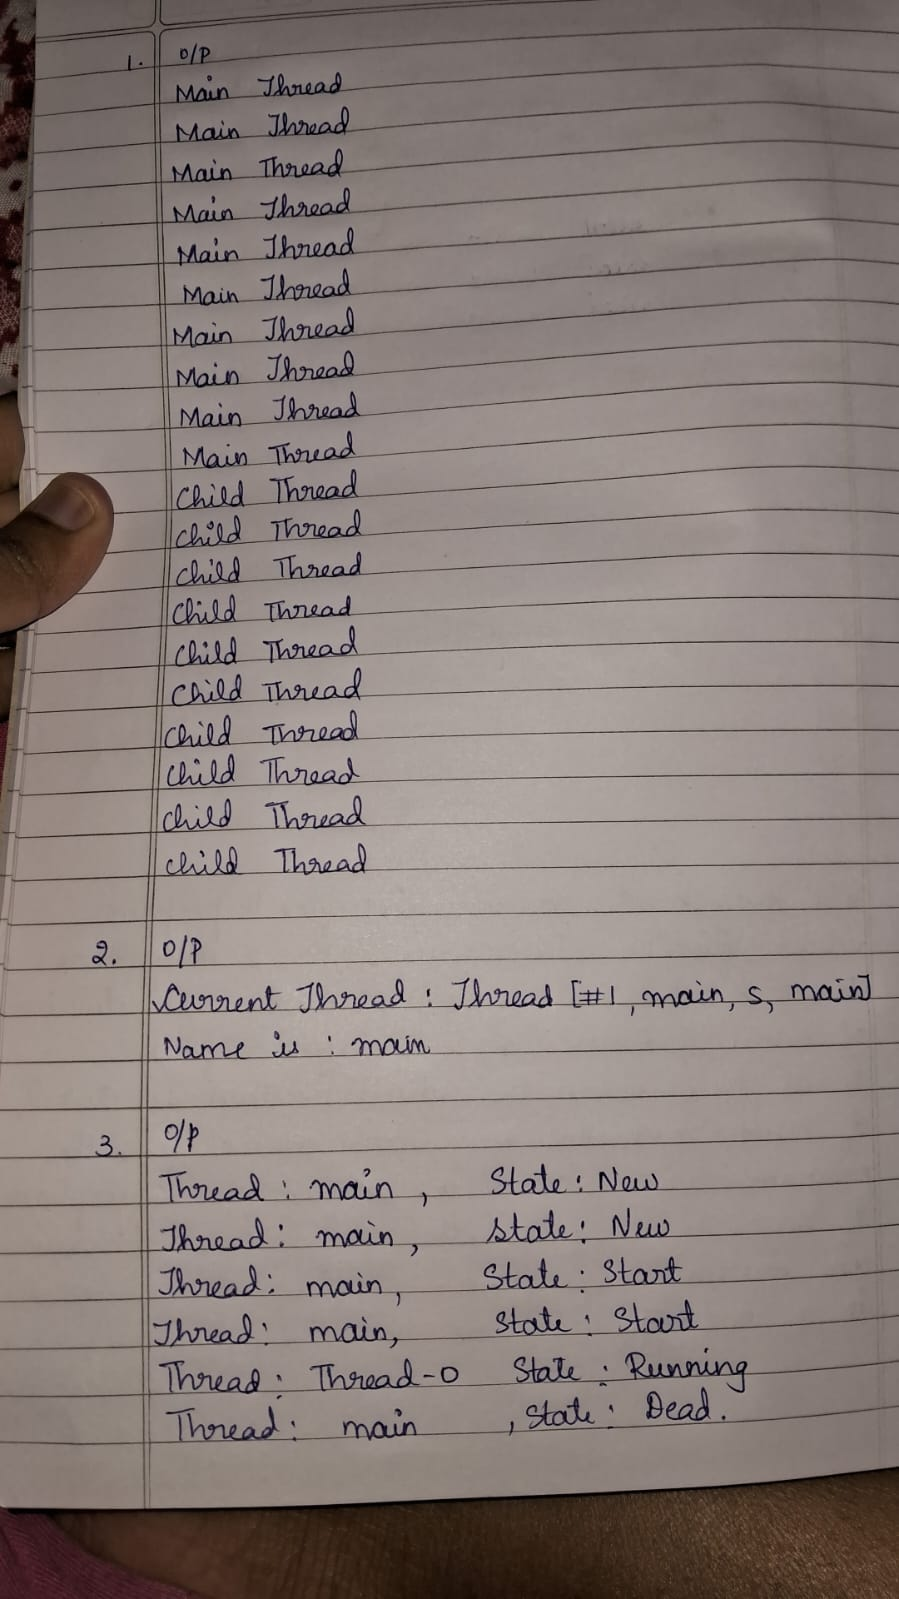 1. O/P
Main Thread
Main Thread
Main Thread
Main Thread
Main Thread
Main Thread
Main Thread
Main Thread
Main Thread
Main Thread
Child Thread
Child Thread
Child Thread
Child Thread
Child Thread
Child Thread
Child Thread
Child Thread
Child Thread
Child Thread
2. O/P
Current Thread : Thread [#1, main, s, main]
Name is : main
3. O/P
Thread : main , State : New
Thread : main , State : New
Thread : main, State : Start
Thread : main, State : Start
Thread : Thread-0 State : Running
Thread : main , State : Dead.